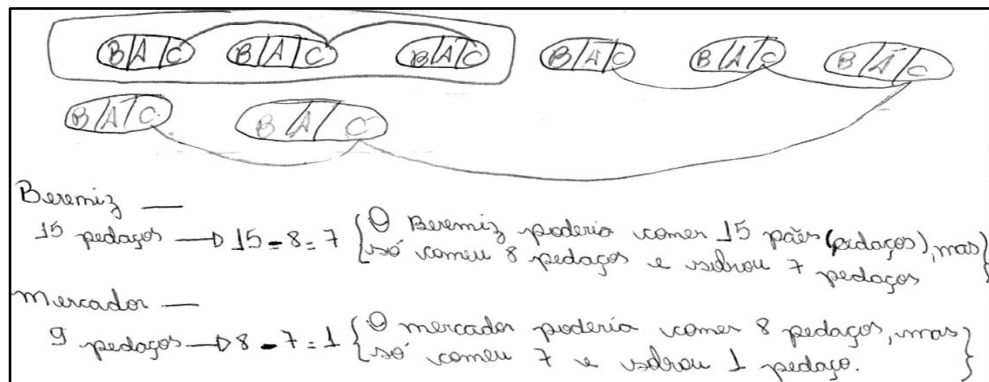 B/A/C B/A/C B/A/C B/A/C B/A/C B/A/C
B/A/C B/A/C
Beremiz —
15 pedaços → 15-8=7 { O Beremiz poderia comer 15 pães (pedaços), mas }
só comeu 8 pedaços e sobrou 7 pedaços
Mercador —
9 pedaços → 8-7=1 { O mercador poderia comer 8 pedaços, mas }
só comeu 7 e sobrou 1 pedaço.